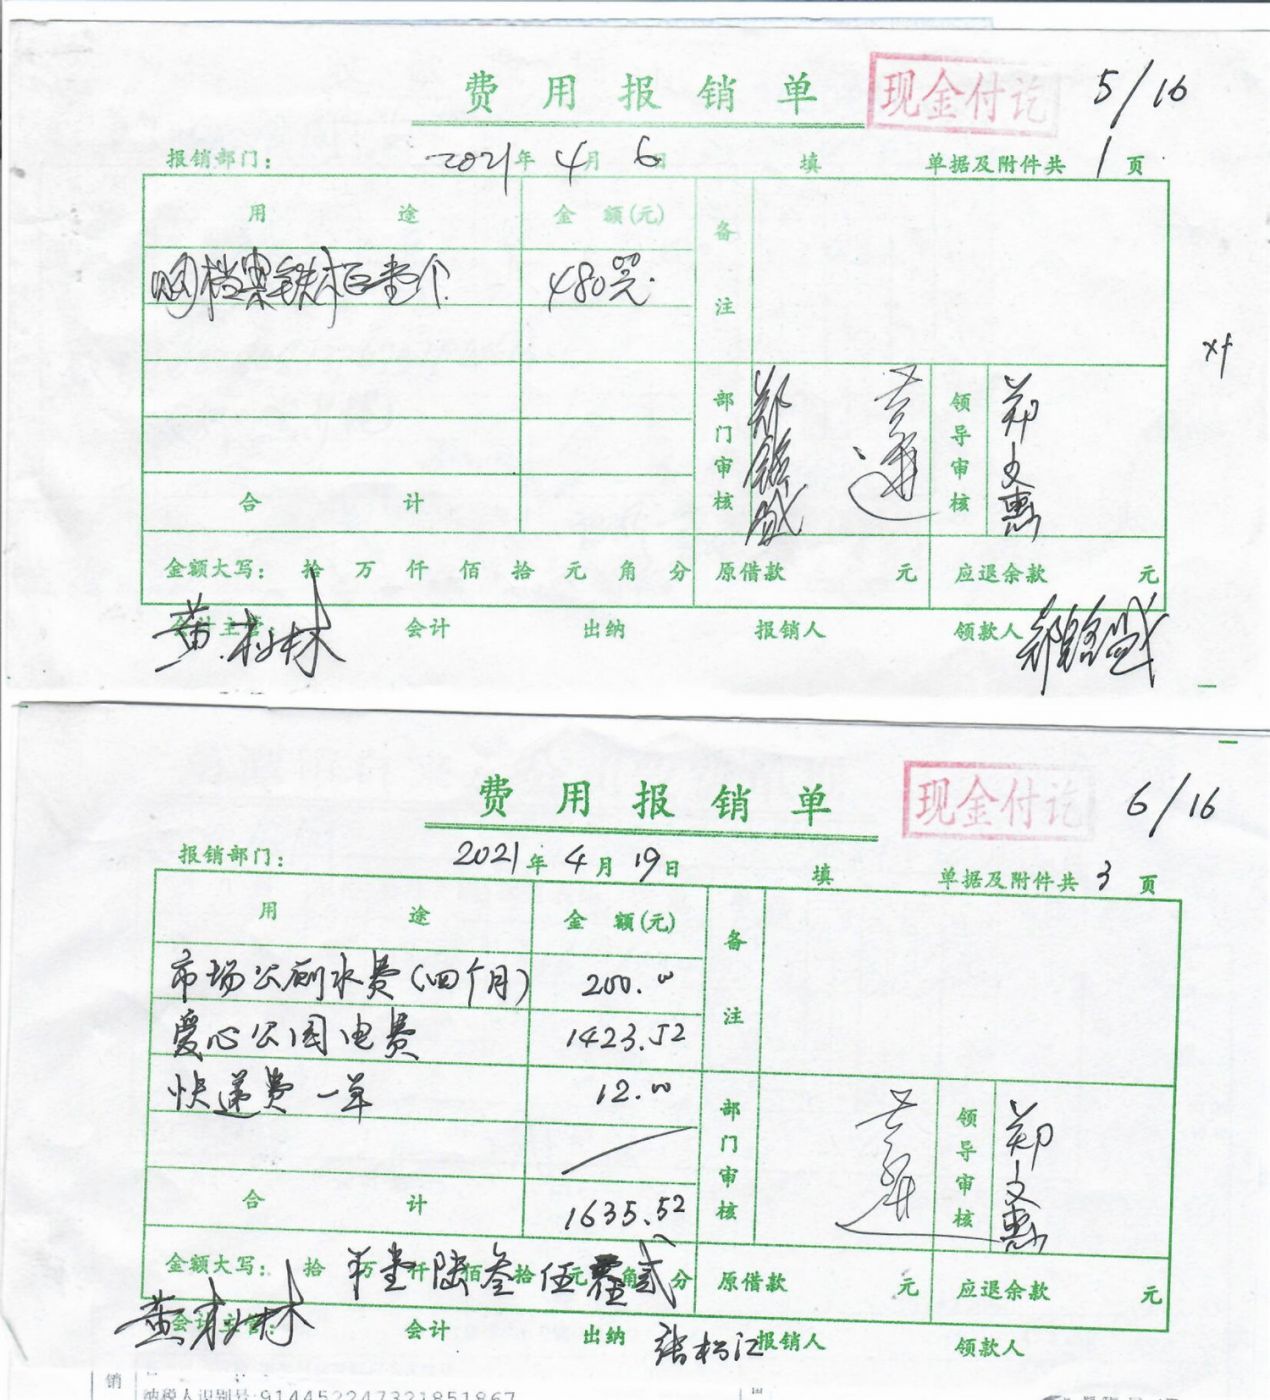 费用报销单 现金付讫 5/16
报销部门： 2021年4月6日 填 单据及附件共1页
用途 金额(元) 备注
档案铁柜壹个 480元
部门审核 领导审核 郑文惠
合计
金额大写： 拾 万 仟 佰 拾 元 角 分 原借款 元 应退余款 元
会计主管： 会计 出纳 报销人 领款人
费用报销单 现金付讫 6/16
报销部门： 2021年4月19日 填 单据及附件共3页
用途 金额(元) 备注
市场公厕水费(四个月) 200.00
爱心公园电费 1423.52
快递费一单 12.00
部门审核 领导审核 郑文惠
合计 1635.52
金额大写： 拾 万壹仟陆佰叁拾伍元 角贰分 原借款 元 应退余款 元
会计主管： 会计 出纳 张松江 报销人 领款人
销 纳税人识别号:914452247321851867